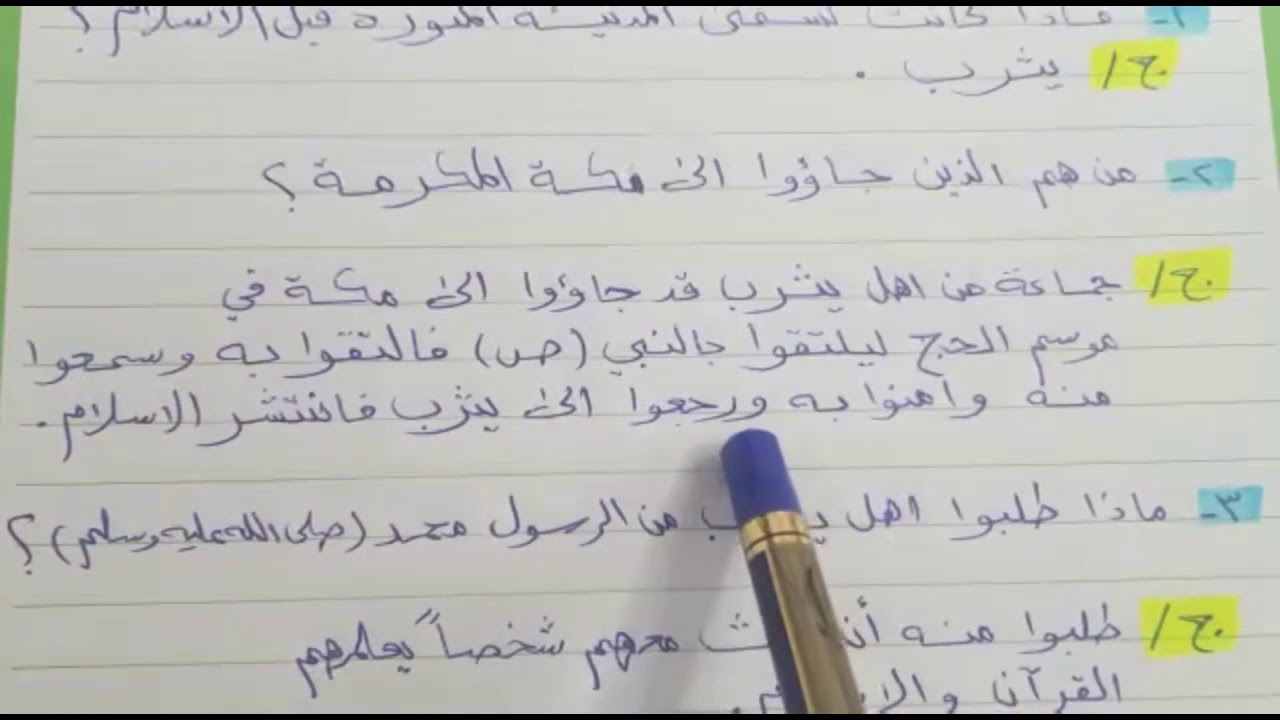 ١- ماذا كانت تسمى المدينة المنورة قبل الاسلام ؟
ج/ يثرب .
٢- من هم الذين جاؤوا الى مكة المكرمة ؟
ج/ جماعة من اهل يثرب قد جاؤوا الى مكة في
موسم الحج ليلتقوا بالنبي (ص) فالتقوا به وسمعوا
منه وامنوا به ورجعوا الى يثرب فانتشر الاسلام.
٣- ماذا طلبوا اهل من الرسول محمد (صلى الله عليه وسلم) ؟
ج/ طلبوا منه معهم شخصاً يعلمهم
القرآن